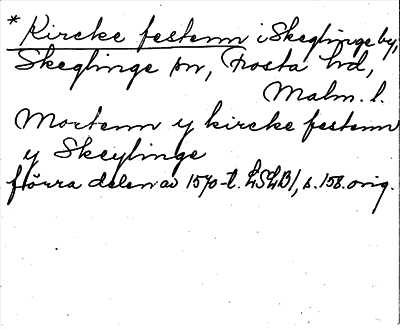 * Kircke festenn i Skeglinge by,
Skeglinge sn, Frosta hd,
Malm. l.
Mortenn y kircke festenn
y Skeylinge
förra delen av 1570-t. LSLB1, s. 158. orig.